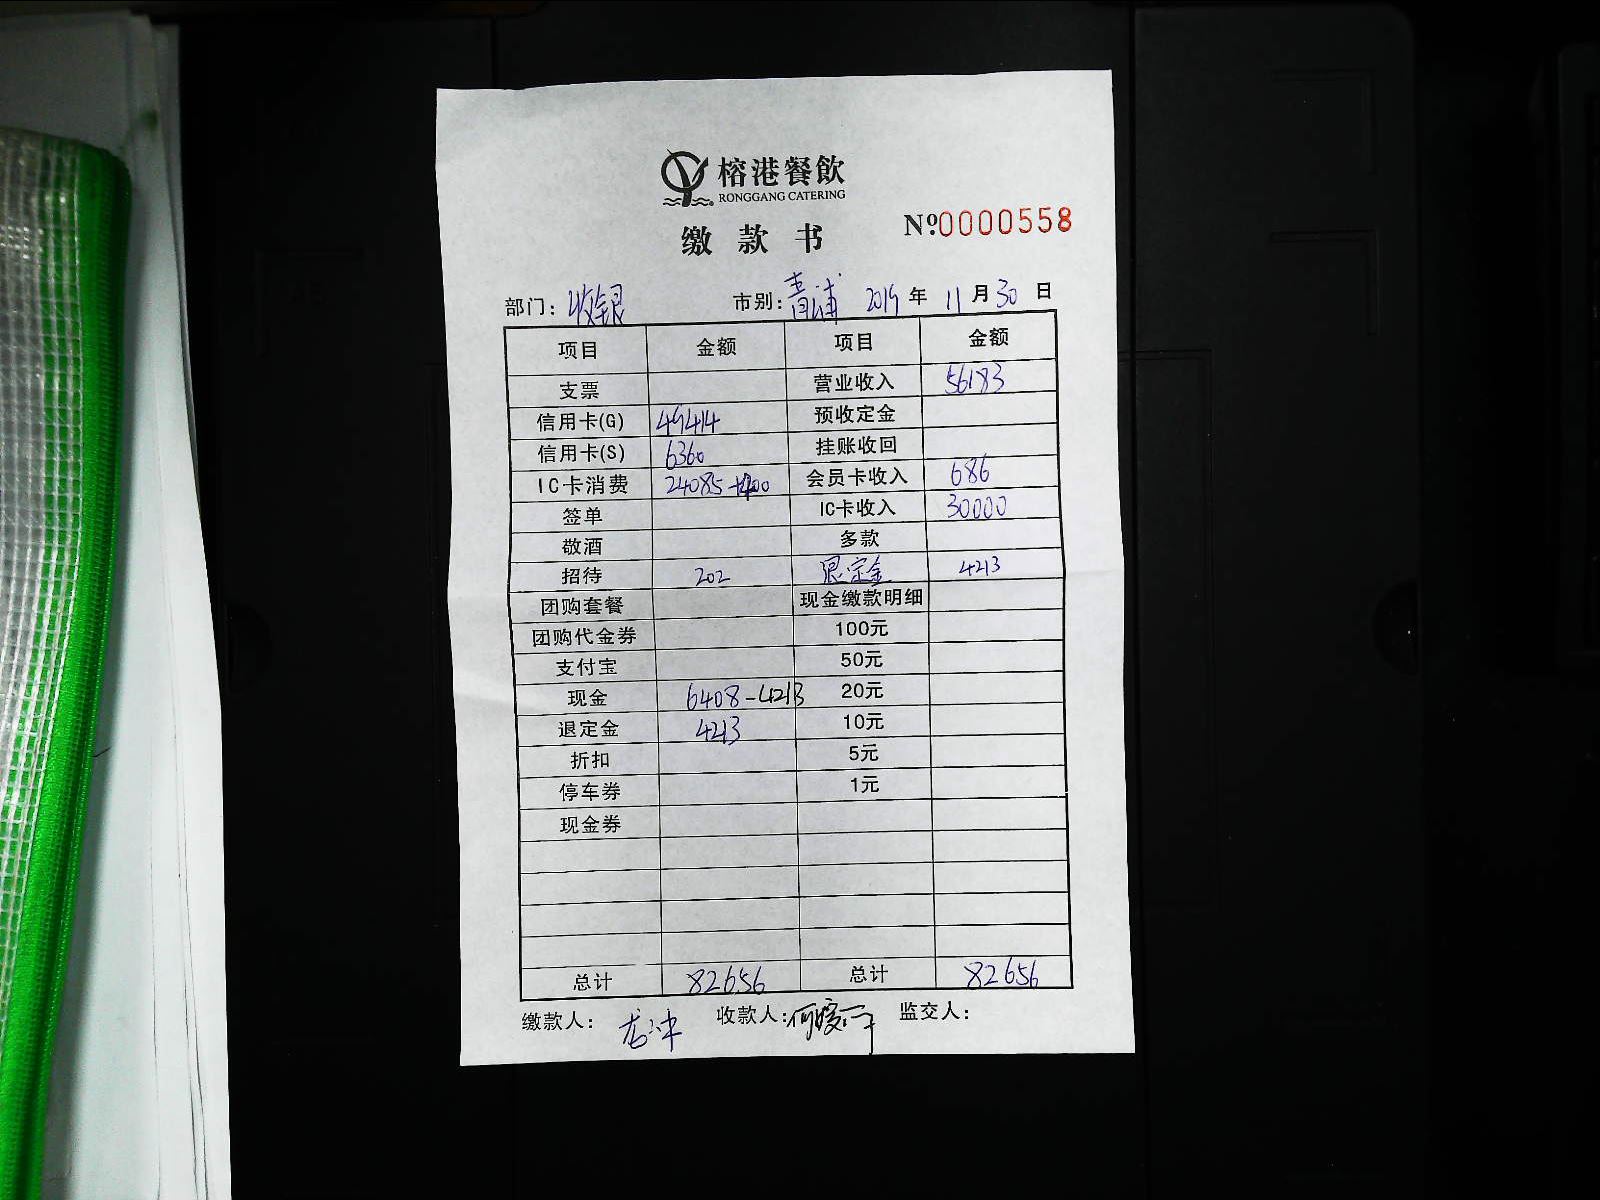 榕港餐飲
RONGGANG CATERING
缴款书
№0000558
部门：收银 市别：青浦 2019年11月30日
项目 金额 项目 金额
支票 营业收入 56183
信用卡(G) 49414 预收定金
信用卡(S) 6360 挂账收回
IC卡消费 24085+400 会员卡收入 686
签单 IC卡收入 30000
敬酒 多款
招待 202 退定金 4213
团购套餐 现金缴款明细
团购代金券 100元
支付宝 50元
现金 6408-4213 20元
退定金 4213 10元
折扣 5元
停车券 1元
现金券
总计 82656 总计 82656
缴款人：龙冲 收款人： 监交人：